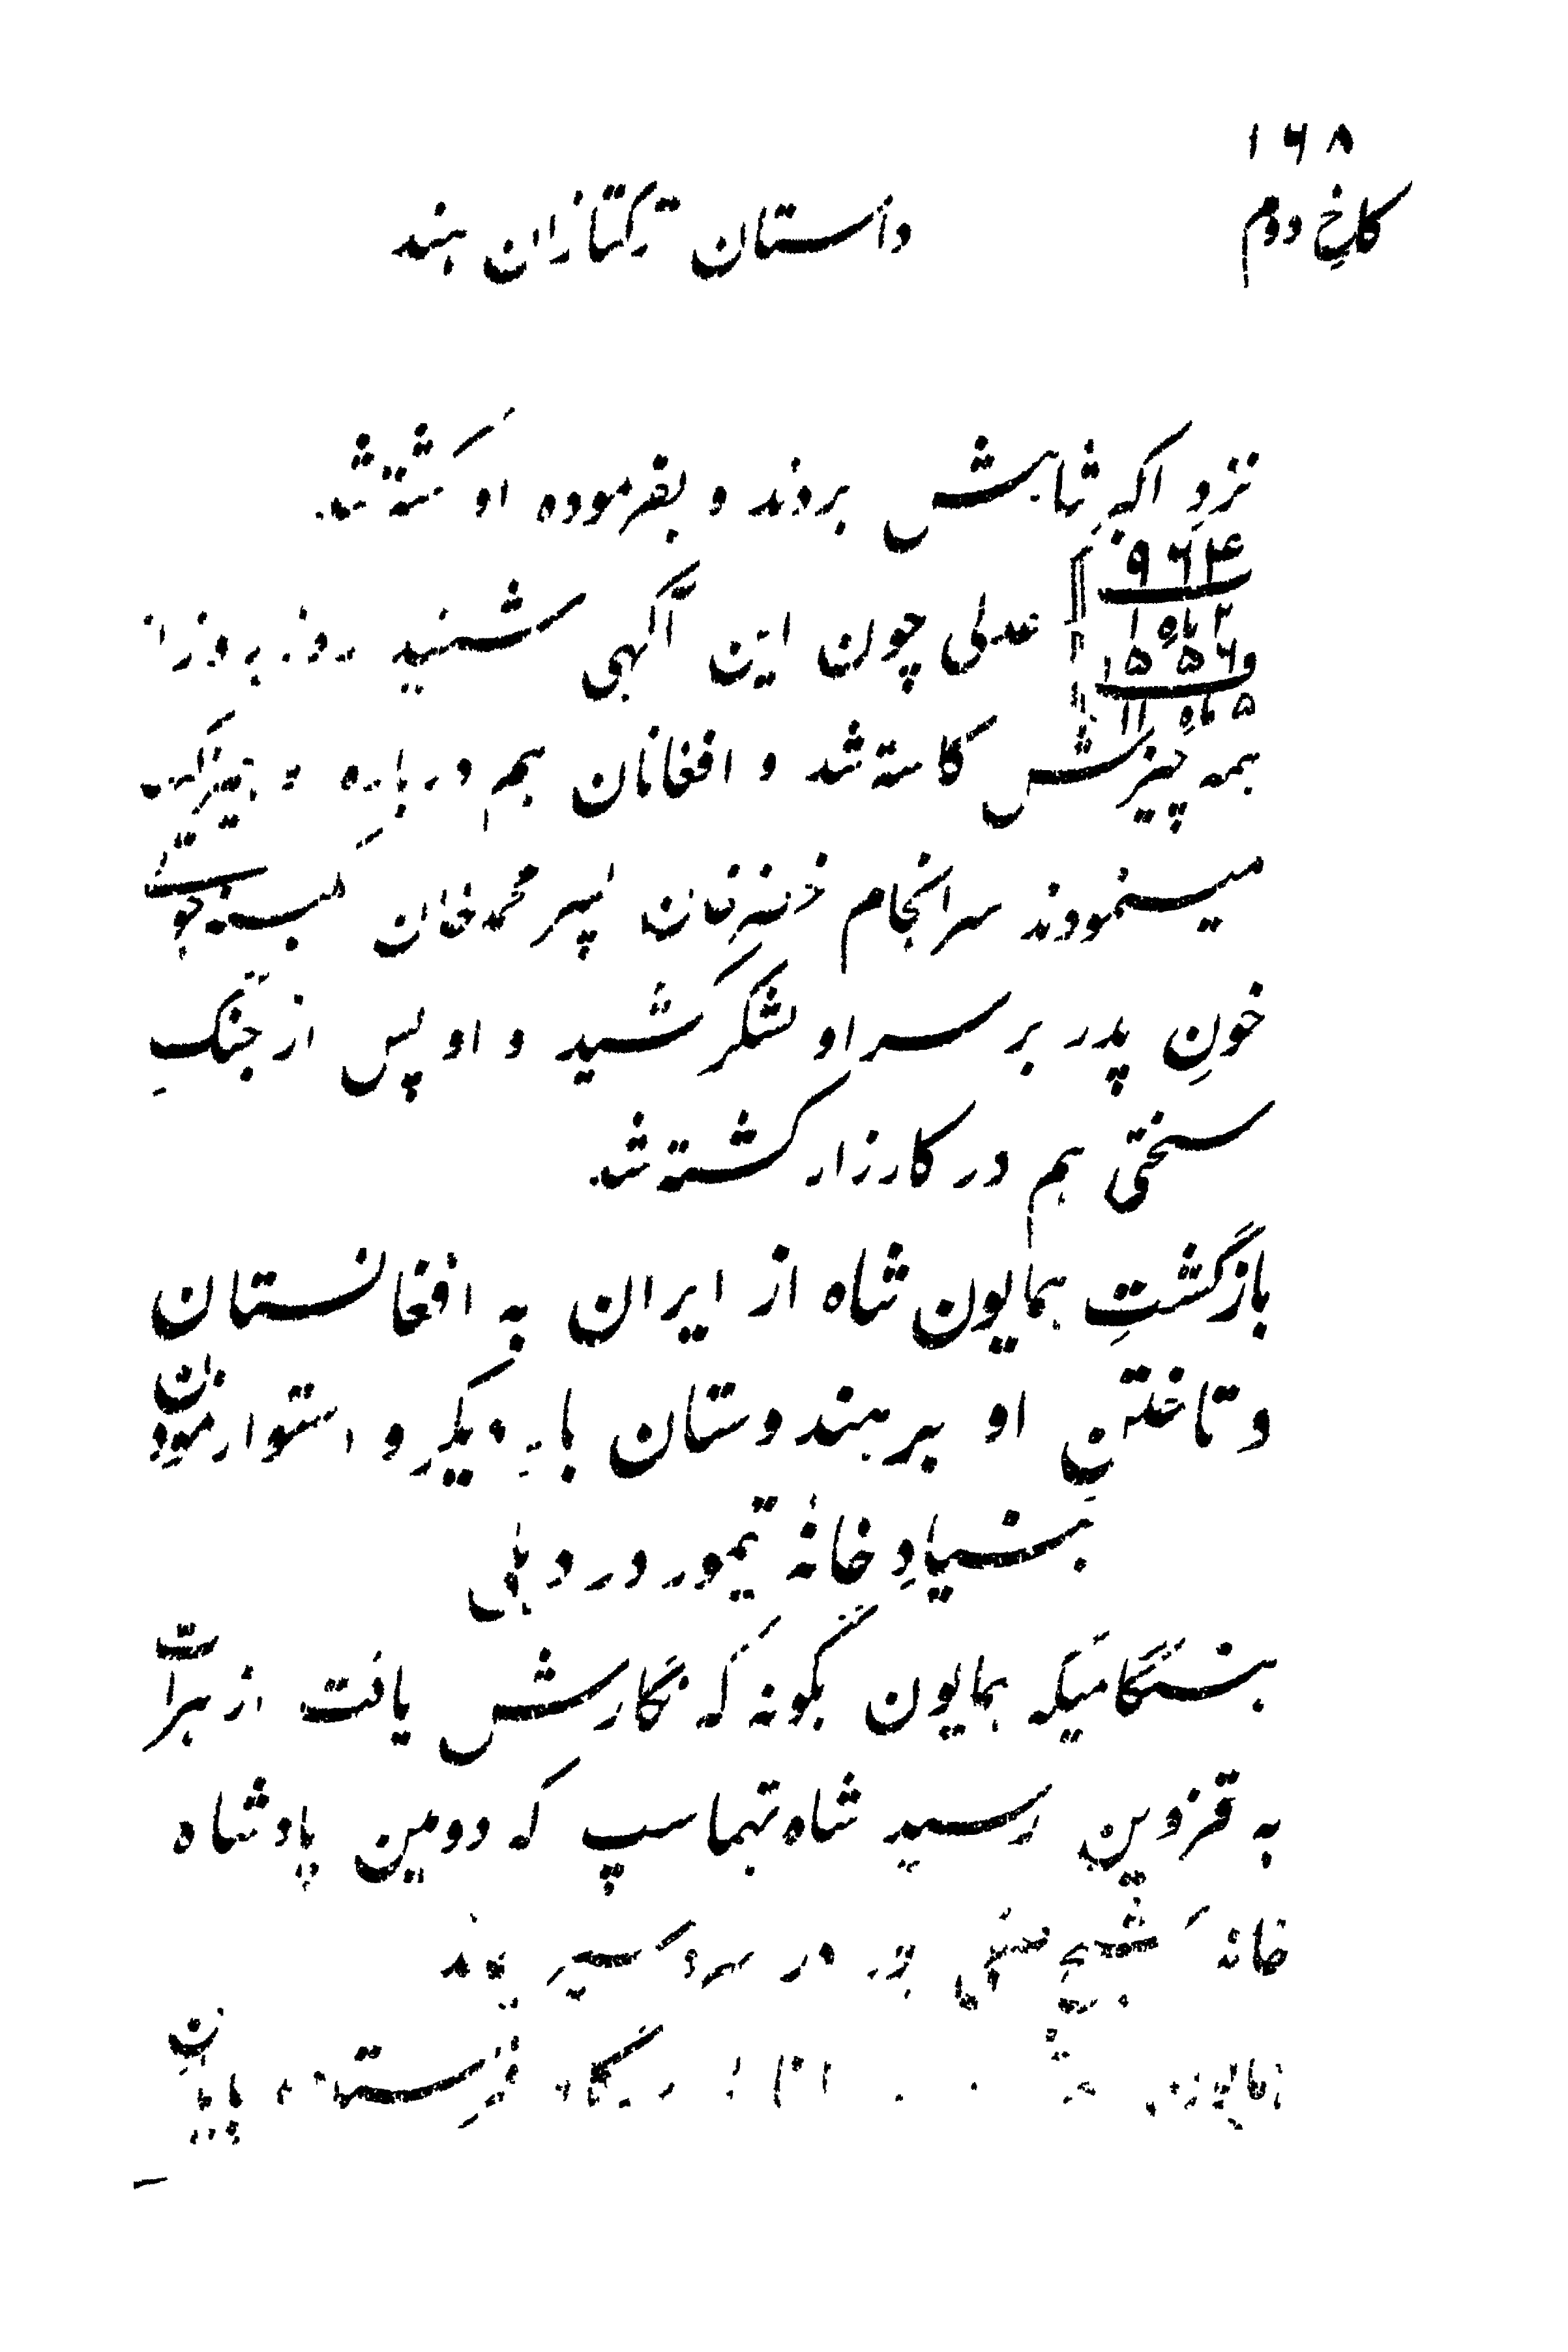 ۱۶۸
کاخ دوم
داستان ترکتازان هند
نزدِ اکبر شاهش بردند و بفرموده او کشته شد.
۹۶۴
۲ ماه ۱
۱۵۵۶
۵ ماه ۱۱
عدلی چون این آگهی شنید روز بروز از
همه چیزش کاسته شد و افغانان هم درباره
مینمودند سرانجام خضرخان پسر محمدخان بکینه‌جوئی
خونِ پدر بر سر او لشکر کشید و او پس از جنگِ
سختی هم در کارزار کشته شد.
بازگشتِ همایون شاه از ایران به افغانستان
و تاختنِ او بر هندوستان بارِ دیگر و استوار نمودنِ
بنیادِ خانهٔ تیمور در دهلی
هنگامیکه همایون بگونه که نگارش یافت از هرات
به قزوین رسید شاه تهماسپ که دومین پادشاه
خانه شیخ صفی بود در سردسیر بودند
همایون پایانِ